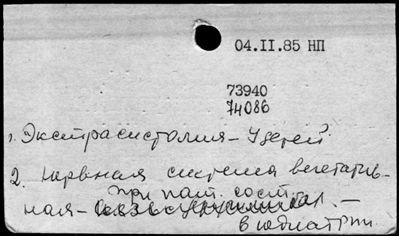 04.II.85 НП
73940
74086
1. Экстрасистолия – У детей.
2. нервная система вегетатив-
при пат. сост.
ная –
в педиатрии